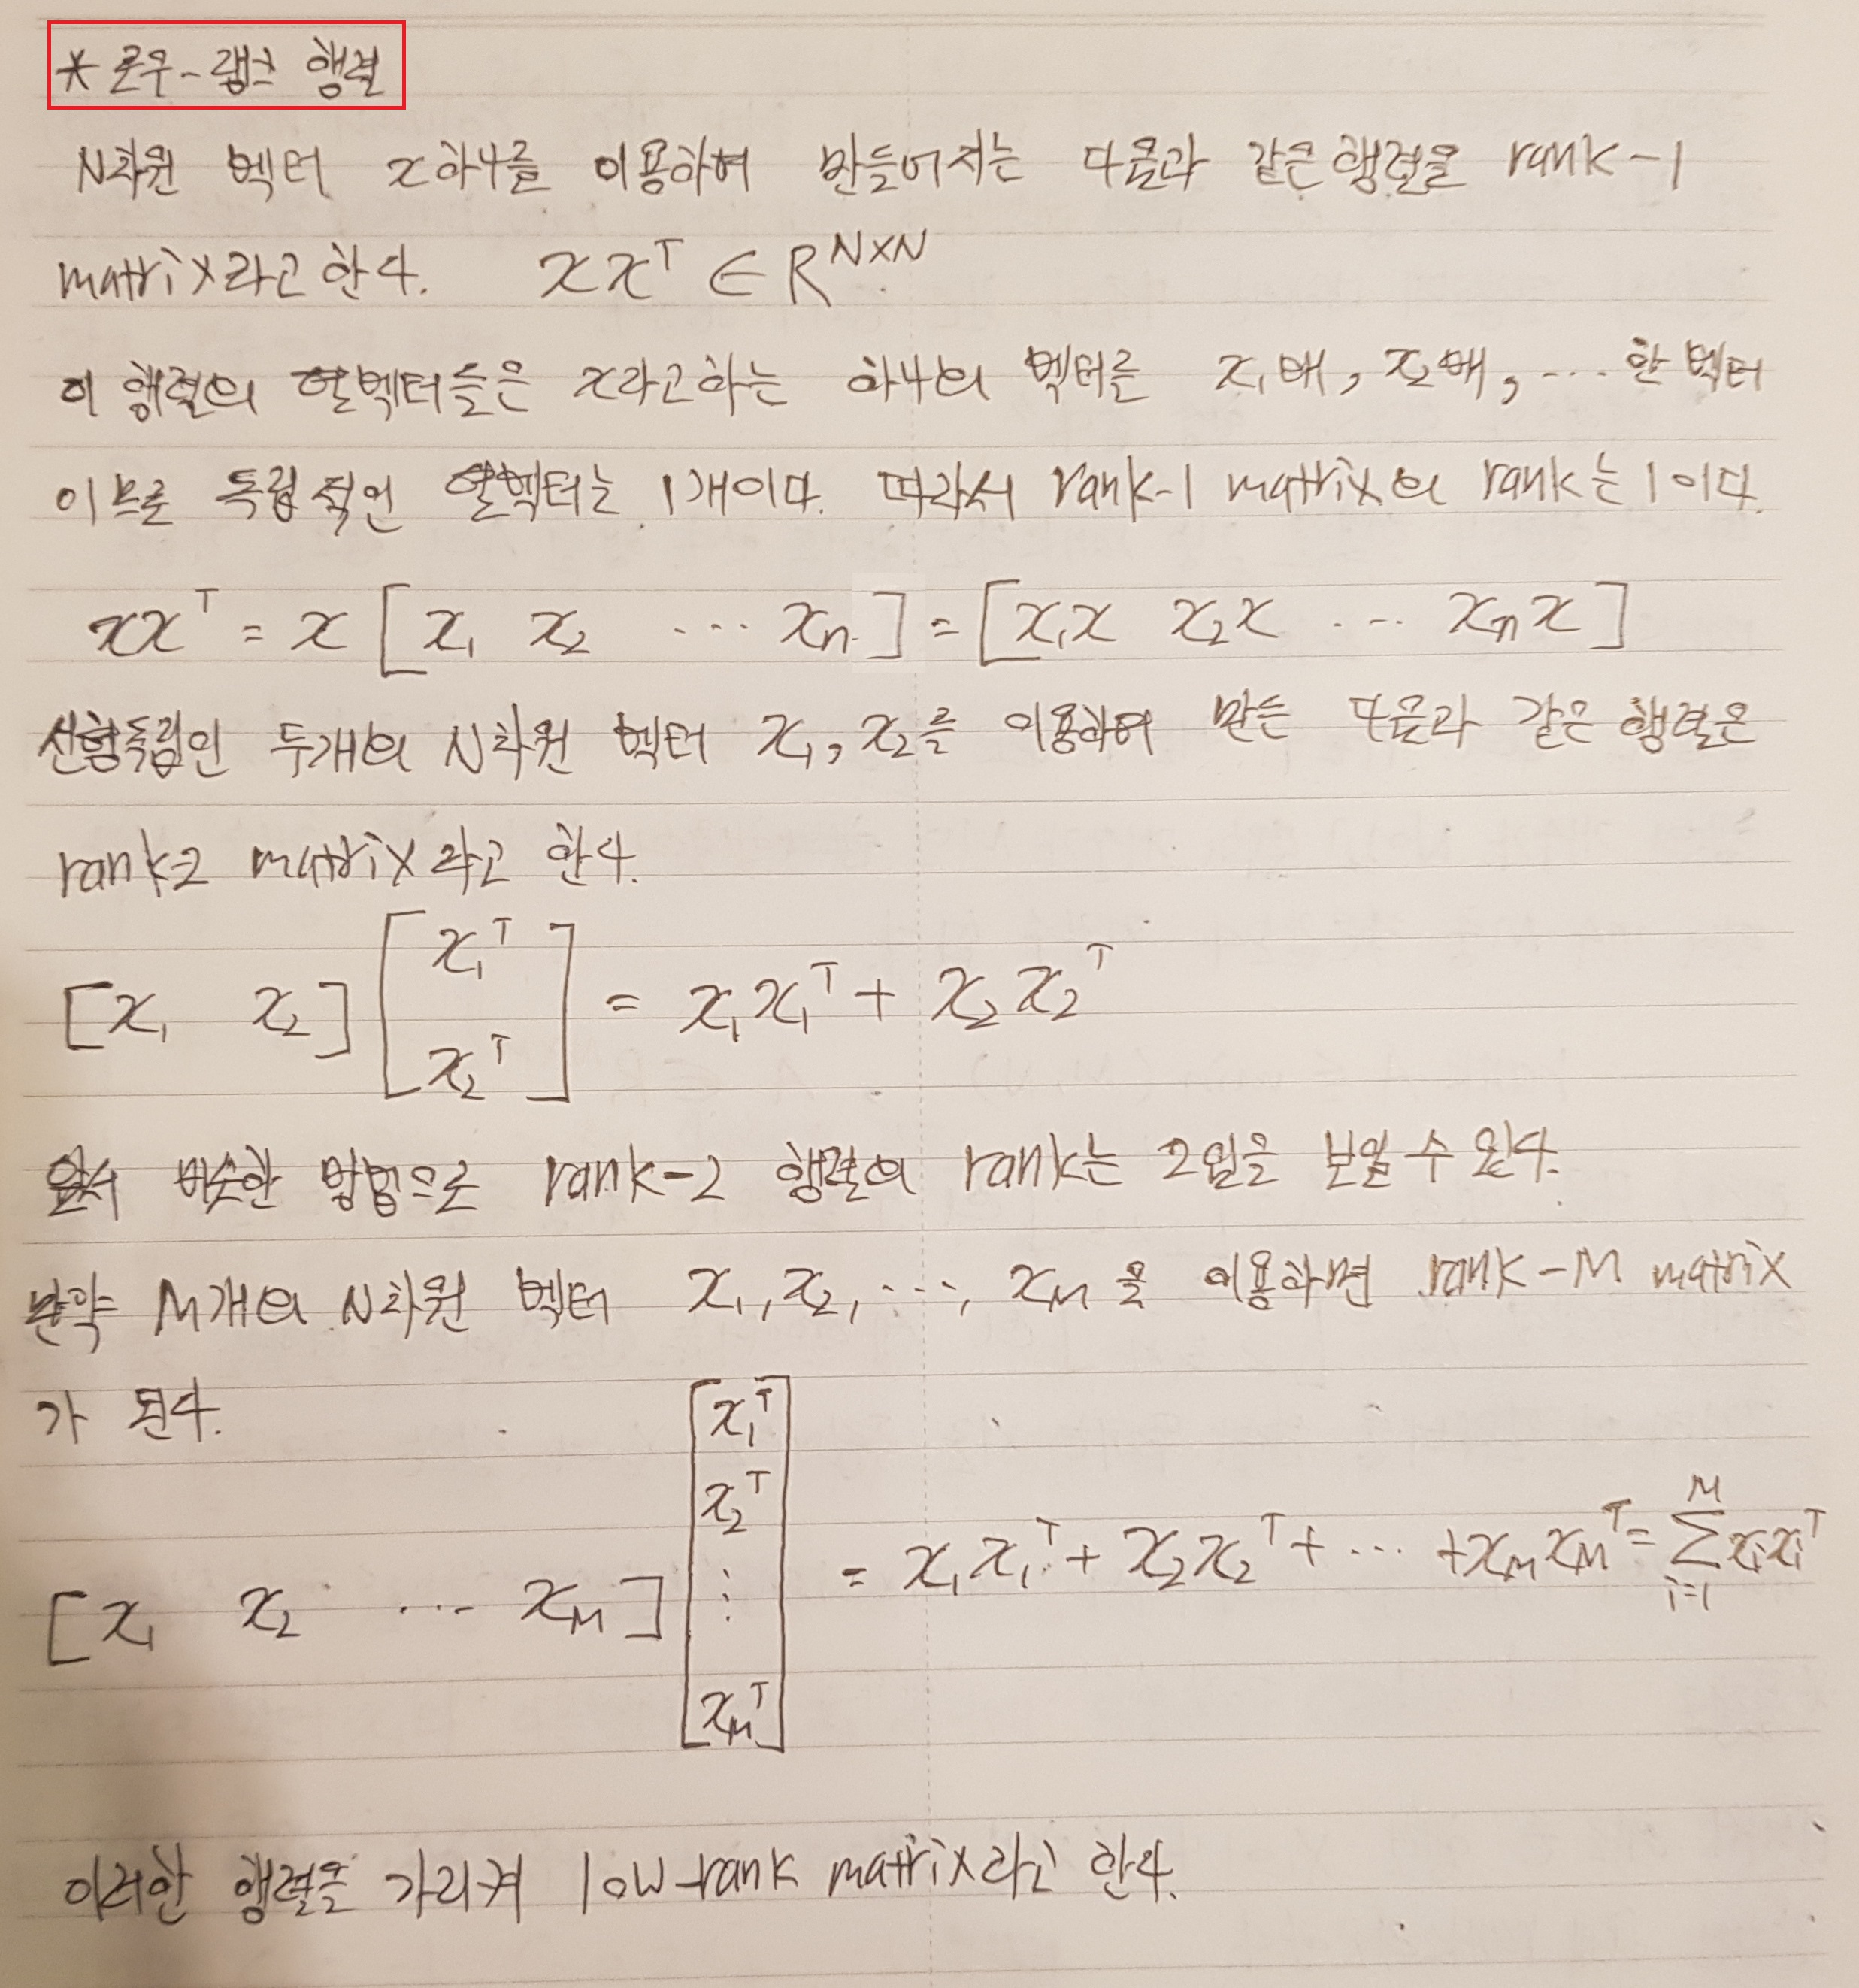 * 로우-랭크 행렬
N차원 벡터 x하나를 이용하여 만들어지는 다음과 같은 행렬을 rank-1
matrix라고 한다. xxᵀ ∈ R^{N×N}
이 행렬의 열벡터들은 x라고하는 하나의 벡터를 x₁배, x₂배, ... 한 벡터
이므로 독립적인 열벡터는 1개이다. 따라서 rank-1 matrix의 rank는 1이다.
xxᵀ = x [x₁ x₂ ... xₙ] = [x₁x x₂x ... xₙx]
선형독립인 두개의 N차원 벡터 x₁, x₂를 이용하여 만든 다음과 같은 행렬은
rank-2 matrix라고 한다.
[x₁ x₂] [x₁ᵀ x₂ᵀ] = x₁x₁ᵀ + x₂x₂ᵀ
앞서 비슷한 방법으로 rank-2 행렬의 rank는 2임을 보일 수 있다.
만약 M개의 N차원 벡터 x₁, x₂, ..., x_M을 이용하면 rank-M matrix
가 된다.
[x₁ x₂ ... x_M] [x₁ᵀ x₂ᵀ ⋮ x_Mᵀ] = x₁x₁ᵀ + x₂x₂ᵀ + ... + x_M x_Mᵀ = Σ_{i=1}^{M} xᵢxᵢᵀ
이러한 행렬을 가리켜 low-rank matrix라고 한다.